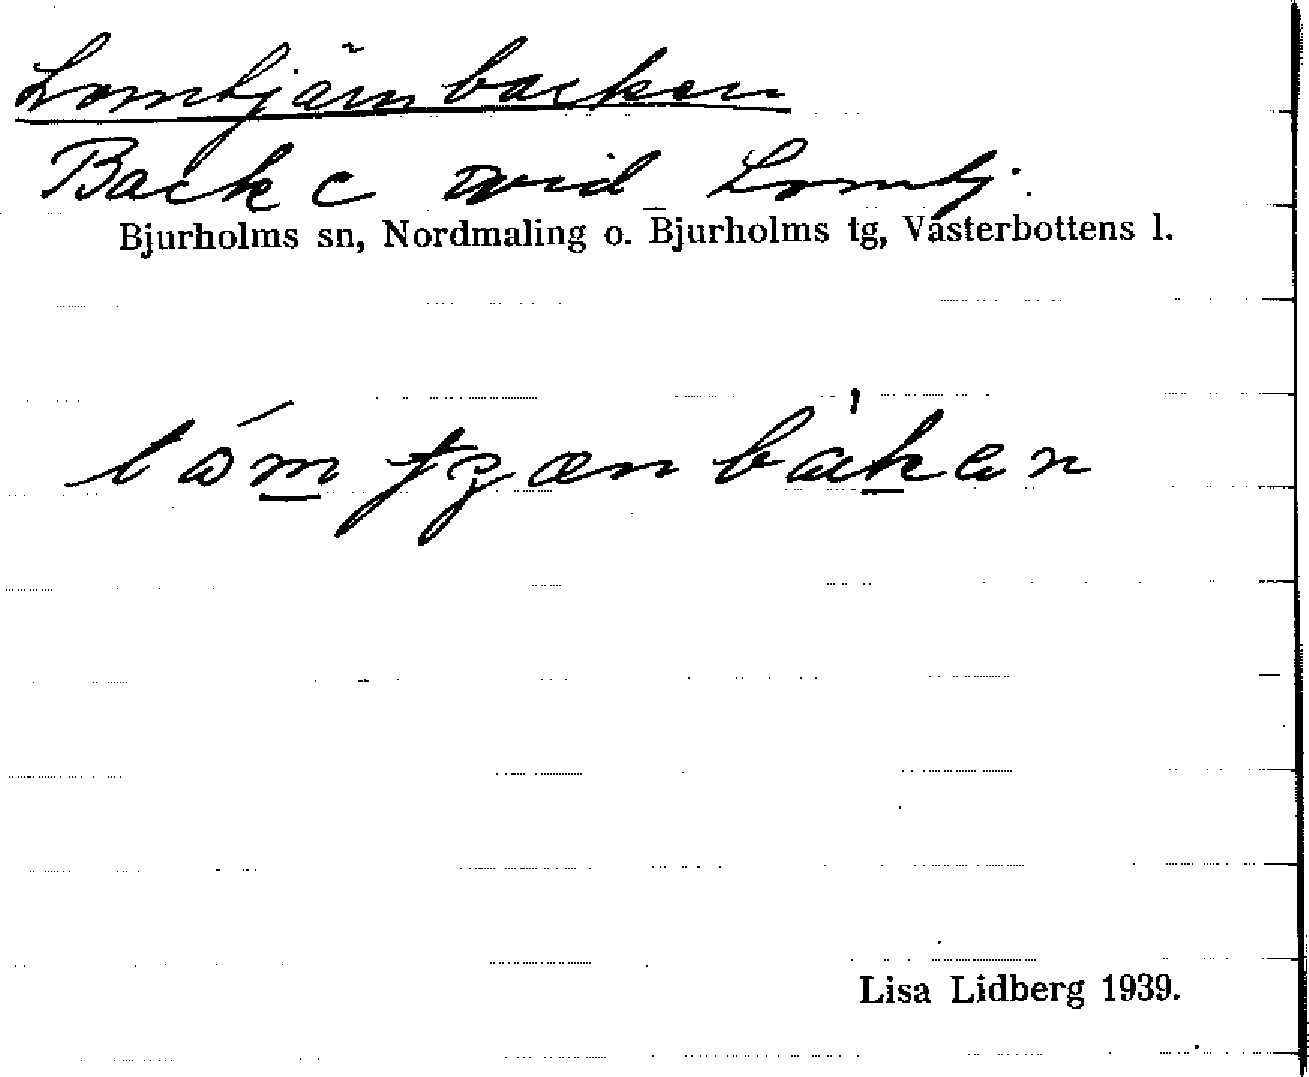 Lomtjärnbacken
Back C vid Lomtj.
Bjurholms sn, Nordmaling o. Bjurholms tg, Västerbottens l.
Lisa Lidberg 1939.